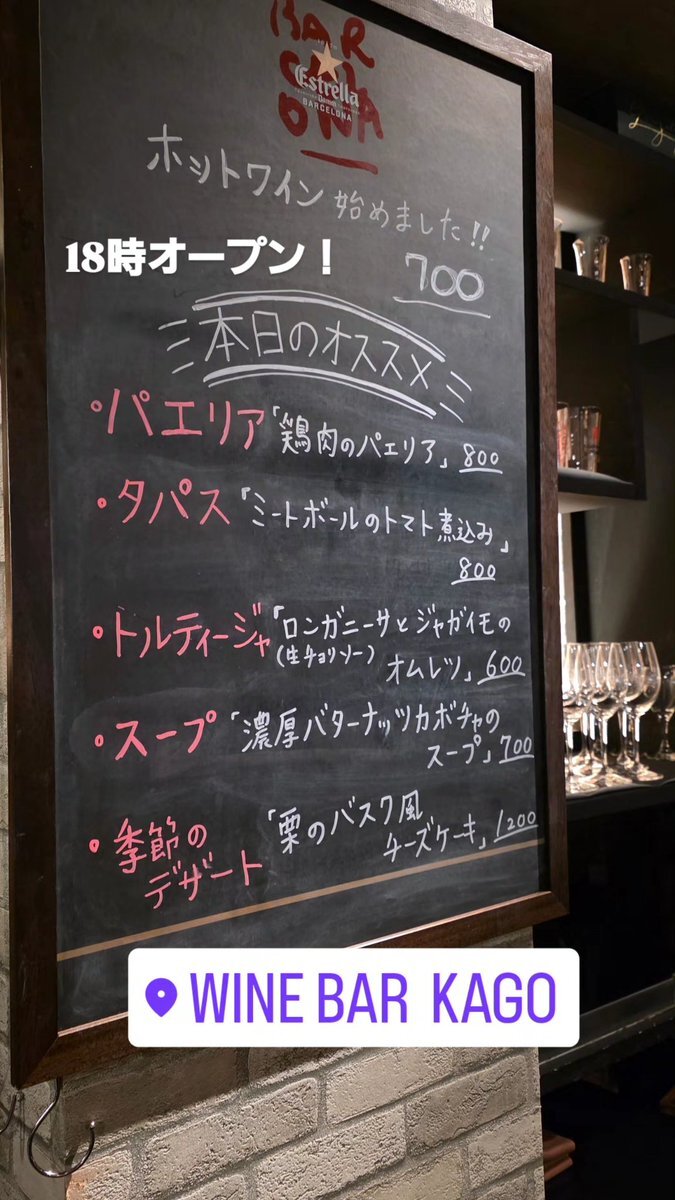 BAR
CEL
ONA
Estrella
Damm
BARCELONA
ホットワイン始めました!!
18時オープン！
700
本日のオススメ
•パエリア「鶏肉のパエリア」800
•タパス「ミートボールのトマト煮込み」
800
•トルティージャ「ロンガニーサとジャガイモの
(生チョリソー)
オムレツ」600
•スープ「濃厚バターナッツカボチャの
スープ」700
•季節の
デザート
「栗のバスク風
チーズケーキ」1200
WINE BAR KAGO